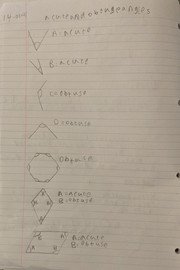 acute and obtuse angles
A. acute
B. acute
C. obtuse
D. obtuse
obtuse
A = acute
B. obtuse
B A
A B
A = acute
B: obtuse